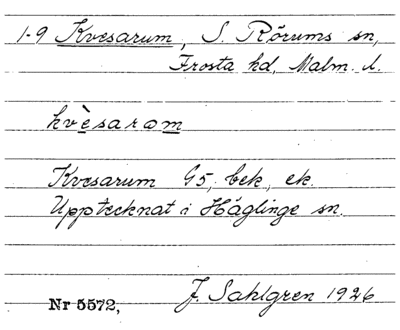 1-9 Kvesarum, S. Rörums sn,
Frosta hd, Malm. l.
kvèsaram
Kvesarum G5, bek., ek.
Upptecknat i Häglinge sn.
J. Sahlgren 1926
Nr 5572,